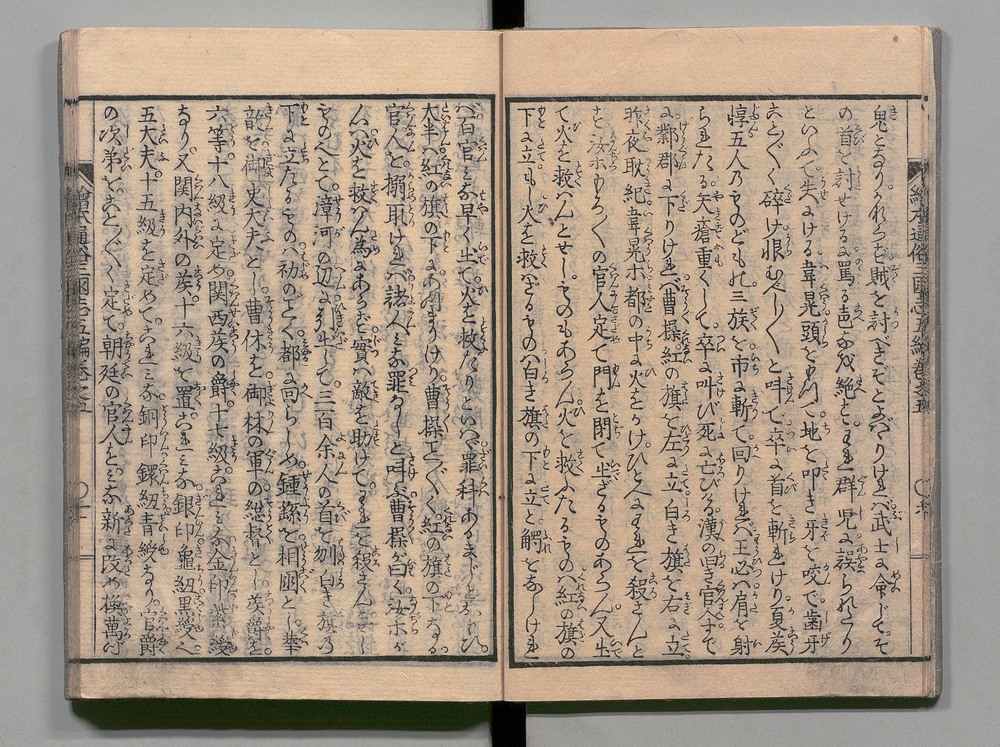 鬼となりかれらを賊を討べきぞとよバりけれバ武士に命じてそ
の首を討せけるに罵る声不絶とこれ群児に誤られたり
といふて失ける韋晃頭を以て地を叩き牙を咬で歯牙
ことごとく碎け恨むべしべしと呌で卒に首を斬れけり夏矦
惇五人のものども并三族を市に斬て回りけれバ王必ハ肩を射
られたる矢瘡重くして卒に呌び死に亡びる漢の百官ミナで
に鄴郡に下りけれバ曹操紅の旗を左に立白き旗を右に立
昨夜耿紀韋晃ホ都の中に火をかけひと〴〵われを殺さんと
す汝ホもろ〳〵の官人定て門を閉て出ざるものあらん又出
て火を救ハんとせしものもあらん火を救ふたるものハ紅の旗の
下に立もし火を救ハざるものハ白き旗の下に立と觸をなしけれ
バ百官ミな早く出て火を救たりといハヾ罪科あるまじと思ひ
大半ハ紅の旗の下にあつまりけり曹操こと〴〵く紅の旗の下なる
官人を搦取けれバ諸人ミな罪なしと呌ぶ曹操が曰く汝ホが
心ハ火を救ハん為にあらず實ハ敵を助けてわれを殺さんとせし
ものぞとて漳河の辺に引出して三百余人の首を刎白き旗の
下に立たるものハ初のごとく都に回らしめ鍾繇を相國とし華
歆を御史大夫とし曹休を御林の軍の総督とし矦爵を
六等十八級に定め関西矦の爵十七級これミな金印紫綬
なり又関内外の矦十六級を置これミな銀印龜紐黒綬ハ
五大夫十五級を定めてこれミな銅印鐶紐青綬なり官爵
の次第をこと〴〵く定て朝廷の官人をミな新に改め換萬の